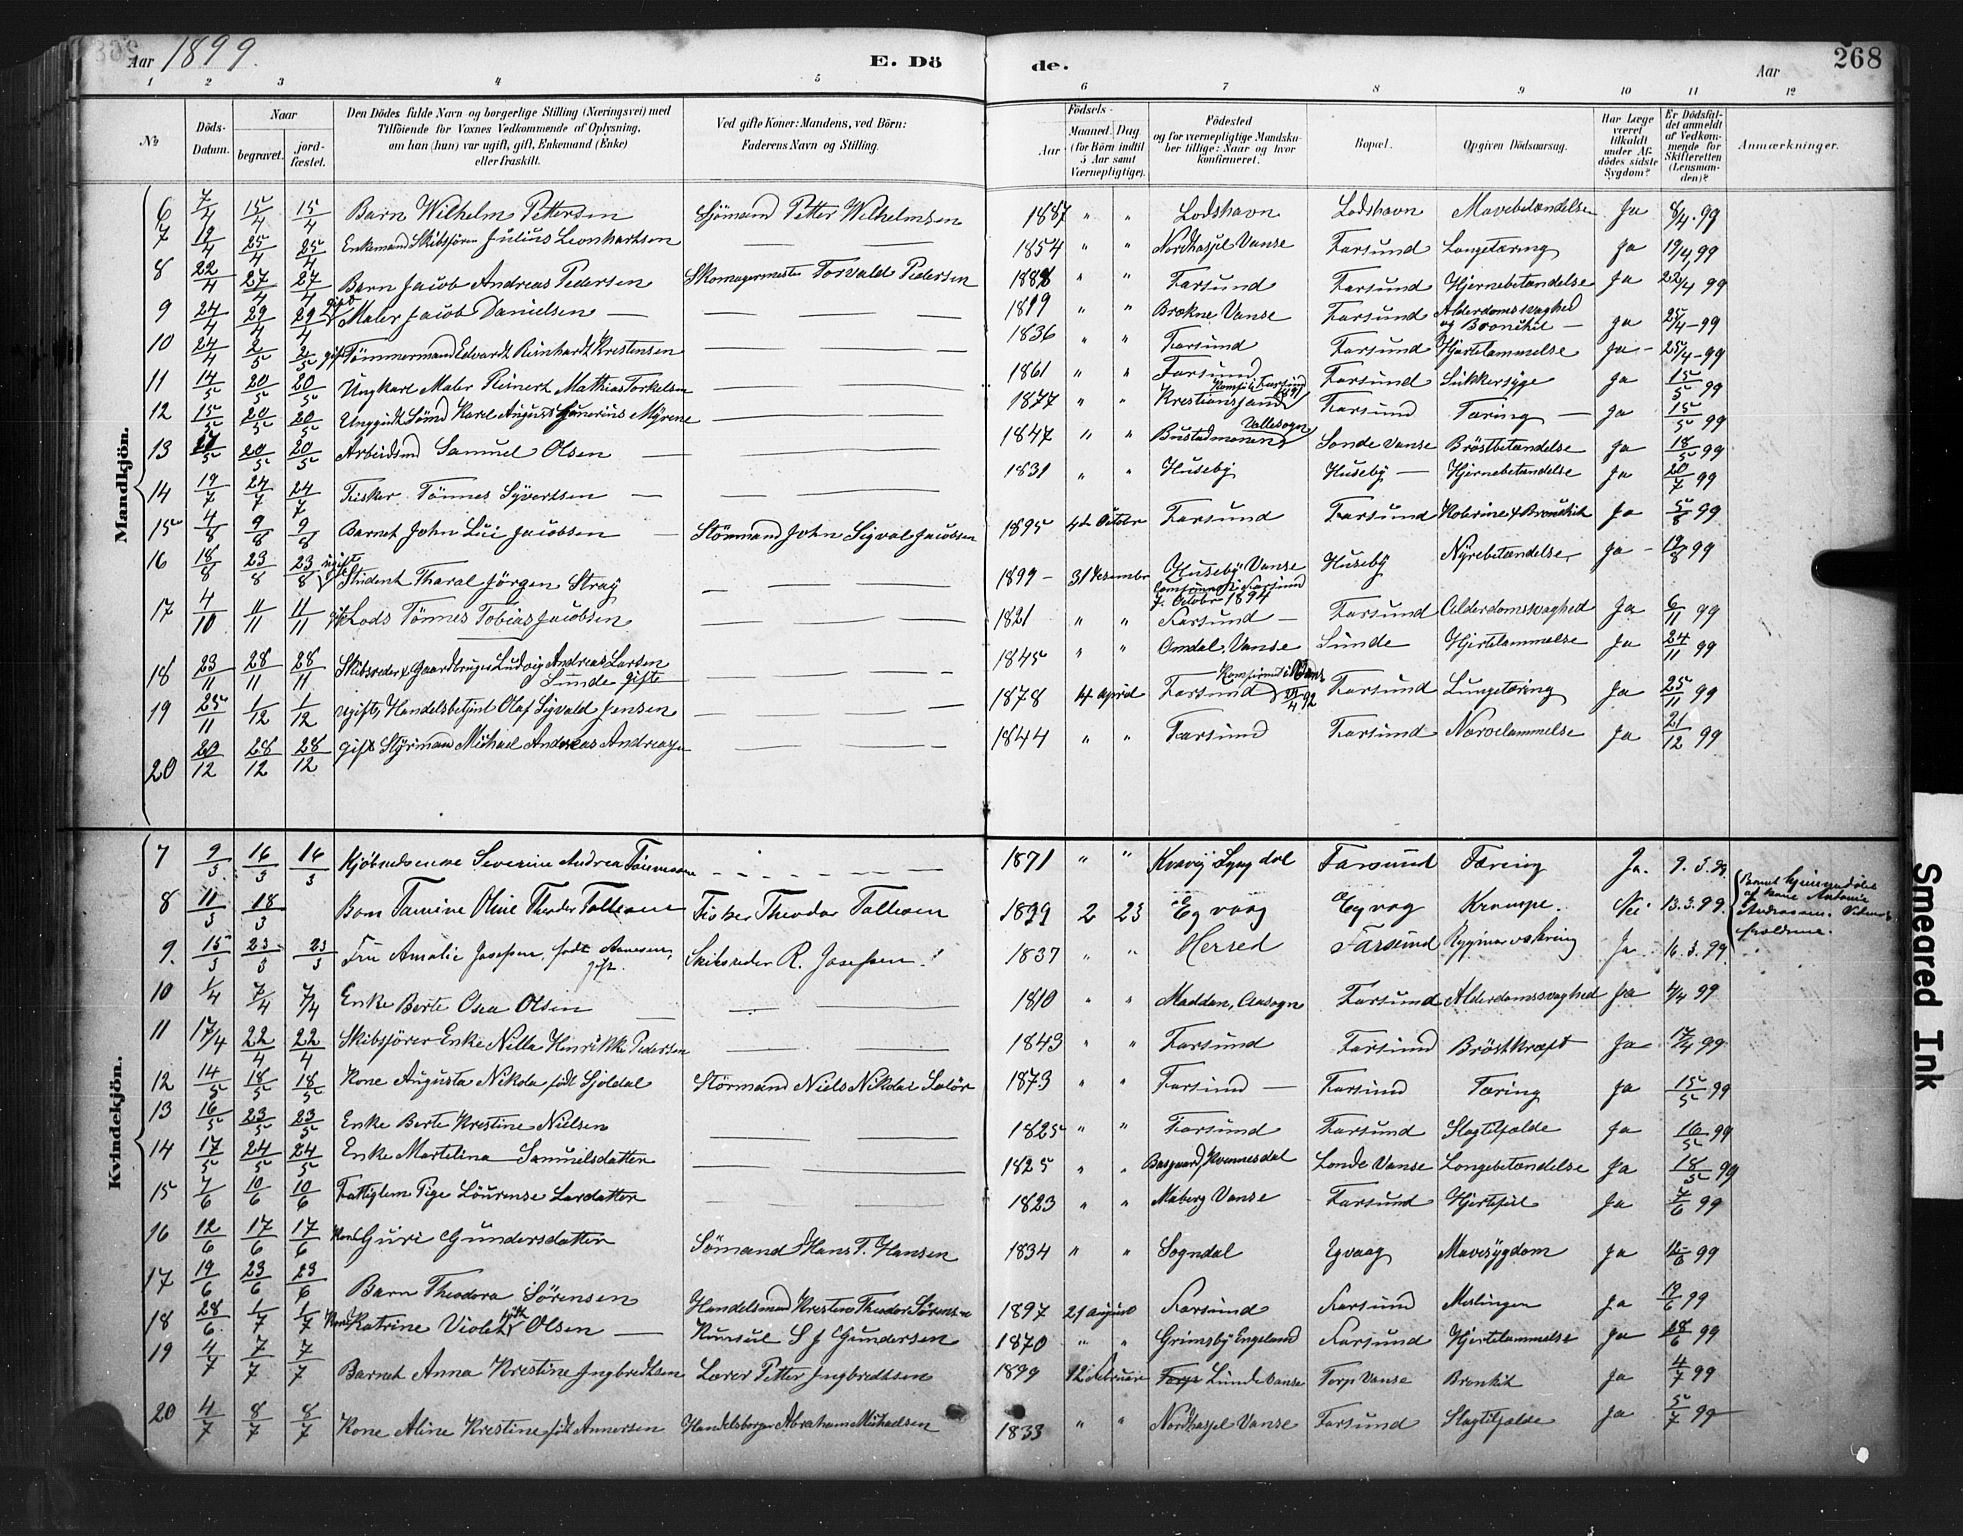 Aar 1899. E. Dö de. Aar 268
1 2 3 4 5 6 7 8 9 10 11 12
No
Döds-Datum.
Naar begravet. jordfæstet.
Den Dödes fulde Navn og borgerlige Stilling (Næringsvei) med Tilföiende for Voxnes Vedkommende af Oplysning, om han (hun) var ugift, gift, Enkemand (Enke) eller fraskilt.
Ved gifte Koner: Mandens, ved Börn: Faderens Navn og Stilling.
Födsels- Aar Maaned. Dag (for Börn indtil 5 Aar samt Værnepligtige).
Födested og for værnepligtige Mandskaber tillige: Naar og hvor konfirmeret.
Bopæl.
Opgiven Dödsaarsag.
Har Læge været tilkaldt under Afdödes sidste Sygdom?
Er Dödsfaldet anmeldt af Vedkommende for Skifteretten (Lensmanden)?
Anmærkninger.
Mandkjön.
6 7/4 15/4 15/4 Barn Wilhelm Pettersen Sjömand Petter Wilhelmsen 1887 " " Lodshavn Lodshavn Mavebetændelse Ja 8/4 99
7 19/4 25/4 25/4 Enkemand Skibsförer Julius Leonhartsen 1854 " " Nordhasjel Vanse Farsund Lungetæring Ja 19/4 99
8 22/4 27/4 27/4 Barn Jacob Andreas Pedersen Skomagermester Torvald Pedersen 1888 " " Farsund Farsund Hjernebetændelse Ja 22/4 99
9 24/4 29/4 29/4 gift Maler Jacob Danielsen 1819 " " Brekne Vanse Farsund Alderdomssvaghed og Bronchit Ja 25/4 99
10 24/4 2/5 2/5 gift Tömmermand Edvardt Reinhardt Kristensen 1836 " " Farsund Farsund Hjertelammelse Ja 25/4 99
11 14/5 20/5 20/5 Ungkarl Maler Reinert Mathias Torkelsen 1861 " " Farsund Farsund Sukkersyge Ja 15/5 99
12 15/5 20/5 20/5 Unggut Sömd Karl August Myrene 1877 " " Kristiansand Konf. i Farsund Farsund Tæring Ja 15/5 99
13 17/5 20/5 20/5 Arbeidsmd Samuel Olsen 1847 " " Bustadmoen Vallesogn Sonde Vanse Bröstbetændelse Ja 18/5 99
14 19/7 24/7 24/7 Fisker Tönnes Syvertsen 1831 " " Huseby Huseby Hjernebetændelse Ja 20/7 99
15 4/8 9/8 9/8 Barnet John Jacobsen Störmand John Sigval Jacobsen 1895 4de October Farsund Farsund Kolerine & Bronchit Ja 5/8 99
16 18/8 23/8 23/8 ugift Student Tharal Jörgen Stray 1899 31 Desember Huseby Vanse Confirmert i Farsund 7. October 1894 Huseby Nyrebetændelse Ja 19/8 99
17 4/10 11/11 11/11 gift Lods Tönnes Tobias Jacobsen 1821 " " Farsund Farsund Alderdomssvaghed Ja 6/11 99
18 23/11 28/11 28/11 Skibsreder & Gaardbruger Ludvig Andreas Larsen Sunde gift 1845 " " Omdal Vanse Sunde Hjertelammelse Ja 24/11 99
19 25/11 1/12 1/12 ugift, Handelsbetjent Olaf Sigvald Jensen 1878 4 April Farsund Konfirmert i 92 Farsund Lungetæring Ja 25/11 99
20 20/12 28/12 28/12 gift Styrmand Michael Andreas Andreasen 1844 " " Farsund Farsund Nervelammelse Ja 21/12 99
Kvindekjön.
7 9/3 16/3 16/3 Severine Andrea Tönnesen 1871 " " Kvavig Lyngdal Farsund Tæring Ja. 9.3.99
8 11/3 18/3 Barn Tamine Oline Theodor Tallesen Fisker Theodor Tallesen 1899 2 23 Egvaag Egvog Krampe. Nei 13.3.99. Barnet hjemmedöbt af
9. 15/3 23/3 23/3 Fru Amalie Josefsen, född Aanensen, gift. Skibsreder R. Josefsen 1837 " " Herred Farsund Rygmarvstæring Ja. 16.3.99.
10 1/4 7/4 7/4 Enke Berte Osea Olsen 1810 " " Madden, Aasogn Farsund Alderdomssvaghed Ja 4/4 99
11 17/4 22/4 22/4 Skibsförer Enke Nilla Henrikke Pedersen 1843 " " Farsund Farsund Bröstkræft Ja 17/4 99
12 14/5 18/5 18/5 Kone Augusta Nikolea födt Sjöldal Störmand Niels Nikolai Salör 1873 " " Farsund Farsund Tæring Ja 15/5 99
13 16/5 23/5 23/5 Enke Berte Kristine Nielsen 1825 " " Farsund Farsund Slagtilfælde Ja 16/5 99
14 17/5 24/5 24/5 Enke Martelina Samuelsdatter 1825 " " Kvinnesdal Londe Vanse Lungebetændelse Ja 18/5 99
15 7/6 10/6 10/6 Fattiglem Pige Lourense Larsdatter 1823 " " Maberg Vanse Farsund Hjertefeil Ja 7/6 99
16 12/6 17/6 17/6 Kone Guri Gundersdatter Sömand Hans T. Hansen 1834 " " Sogndal Egvaag Mavesygdom Ja 12/6 99
17 19/6 23/6 23/6 Barn Theodora Sörensen Handelsmand Kristen Theodor Sörensen 1897 21 august Farsund Farsund Meslinger Ja 19/6 99
18 28/6 1/7 1/7 Kone Katrine Violet födt Olsen Konsul S J Gundersen 1870 " " Grimsby Engeland Farsund Hjertelammelse Ja 28/6 99
19 4/7 7/7 7/7 Barnet Anna Kristine Ingbredtsen Lærer Petter Ingbredtsen 1899 12 Februar Torp Lunde Vanse Torp Vanse Bronkit Ja 4/7 99
20 4/7 8/7 8/7 Kone Aline Kristine född Annersen Handelsborger Abraham Michaelsen 1833 " " Nordhasjel Vanse Farsund Slagtilfælde Ja 5/7 99
Smeared Ink